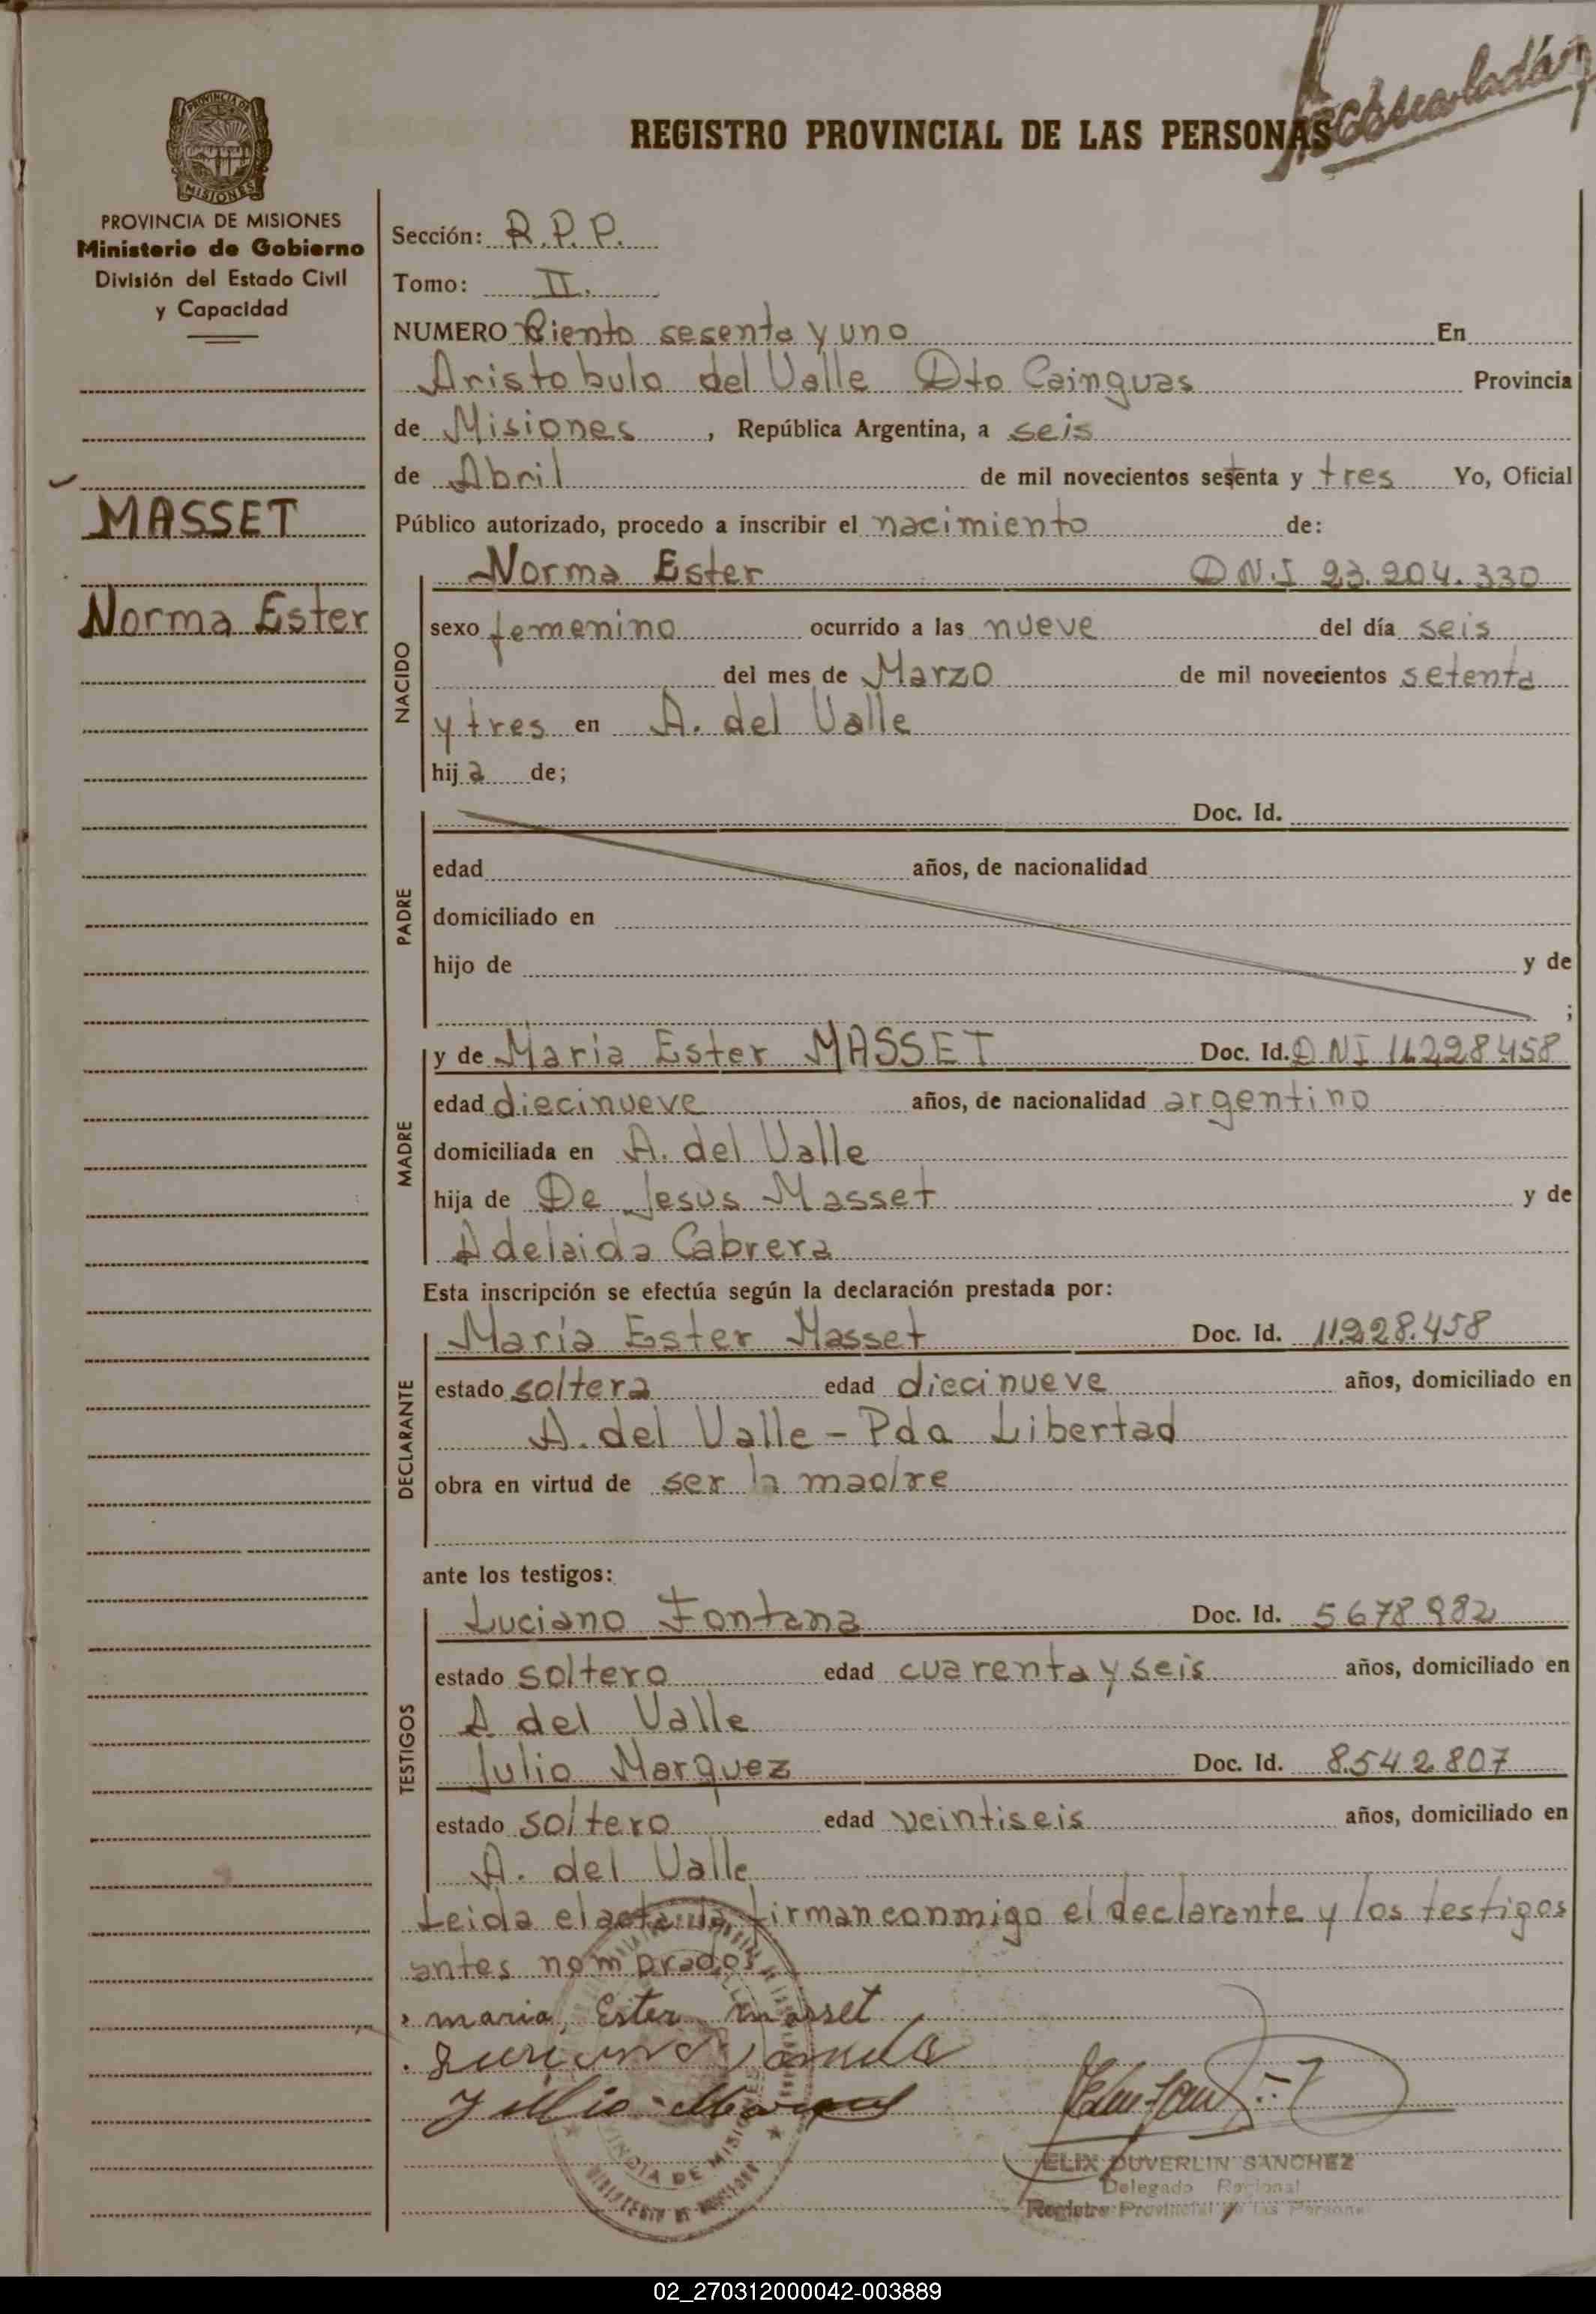 REGISTRO PROVINCIAL DE LAS PERSONAS
PROVINCIA DE MISIONES
PROVINCIA DE MISIONES
Ministerio de Gobierno
División del Estado Civil
y Capacidad
MASSET
Norma Ester
Sección: R.P.P.
Tomo: II.
NUMERO Ciento sesenta y uno En
Aristobulo del Valle Dto Cainguas Provincia
de Misiones, República Argentina, a seis
de Abril de mil novecientos setenta y tres Yo, Oficial
Público autorizado, procedo a inscribir el nacimiento de:
NACIDO
Norma Ester DNI 23.204.330
sexo femenino ocurrido a las nueve del día seis
del mes de Marzo de mil novecientos setenta
y tres en A. del Valle
hija de;
PADRE
Doc. Id.
edad años, de nacionalidad
domiciliado en
hijo de y de
;
MADRE
y de Maria Ester MASSET Doc. Id. DNI 11.228458
edad diecinueve años, de nacionalidad argentino
domiciliada en A. del Valle
hija de De Jesus Masset y de
Adelaida Cabrera
Esta inscripción se efectúa según la declaración prestada por:
DECLARANTE
María Ester Masset Doc. Id. 11.228.458
estado soltera edad diecinueve años, domiciliado en
A. del Valle - Pda Libertad
obra en virtud de ser la madre
ante los testigos:
TESTIGOS
Luciano Fontana Doc. Id. 5678982
estado soltero edad cuarenta y seis años, domiciliado en
A del Valle
Julio Marquez Doc. Id. 8.542.807
estado soltero edad veintiseis años, domiciliado en
A. del Valle
Leida el acta la firman conmigo el declarante y los testigos
antes nombrados
maria Ester masset
Julio Marquez
FELIX DUVERLIN SANCHEZ
Delegado Regional
Registro Provincial de las Personas
PROVINCIA DE MISIONES
02_270312000042-003889